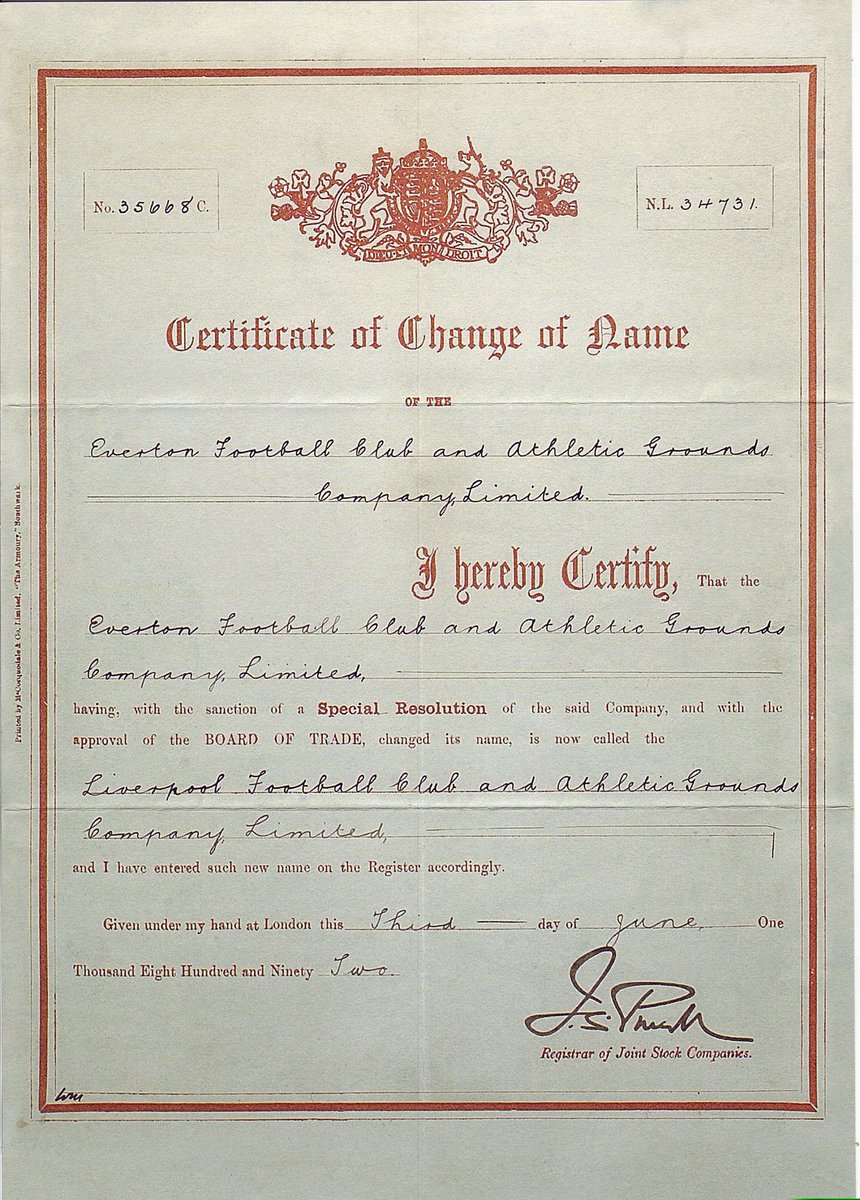 No. 35668 C.
N.L. 34731.
DIEU ET MON DROIT
Certificate of Change of Name
OF THE
Everton Football Club and Athletic Grounds
Company, Limited.
I hereby Certify, That the
Everton Football Club and Athletic Grounds
Company, Limited,
having, with the sanction of a Special Resolution of the said Company, and with the
approval of the BOARD OF TRADE, changed its name, is now called the
Liverpool Football Club and Athletic Grounds
Company, Limited,
and I have entered such new name on the Register accordingly.
Given under my hand at London this Third day of June, One
Thousand Eight Hundred and Ninety Two.
J. S. Purcell
Registrar of Joint Stock Companies.
Printed by McCorquodale & Co. Limited, "The Armoury," Southwark.